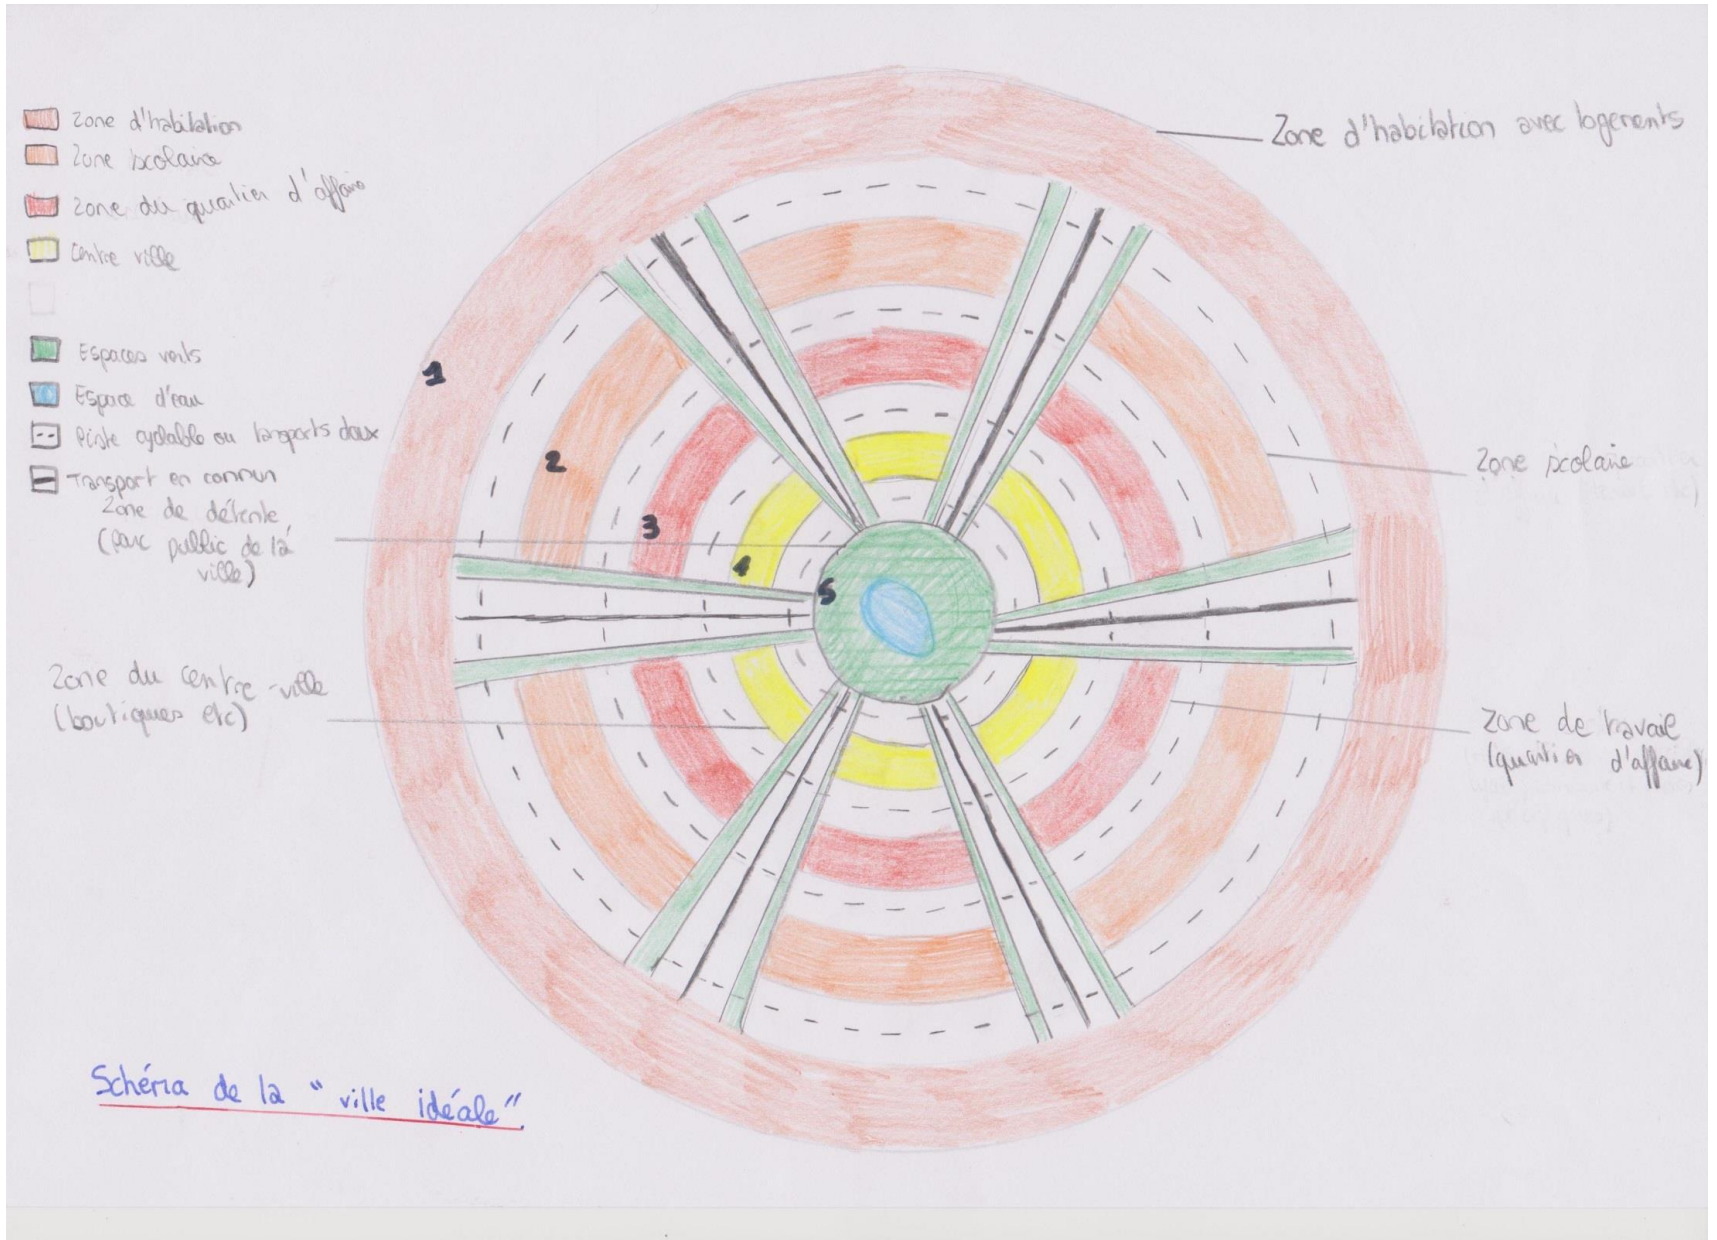 Zone d'habitation
Zone scolaire
Zone du quartier d'affaire
Centre ville
Espaces verts
Espace d'eau
Piste cyclable ou transports doux
Transport en commun
Zone de détente
(Parc public de la
ville)
Zone du centre-ville
(boutiques etc)
Zone d'habitation avec logements
Zone scolaire
Zone de travail
(quartier d'affaire)
1
2
3
4
5
Schéma de la "ville idéale"